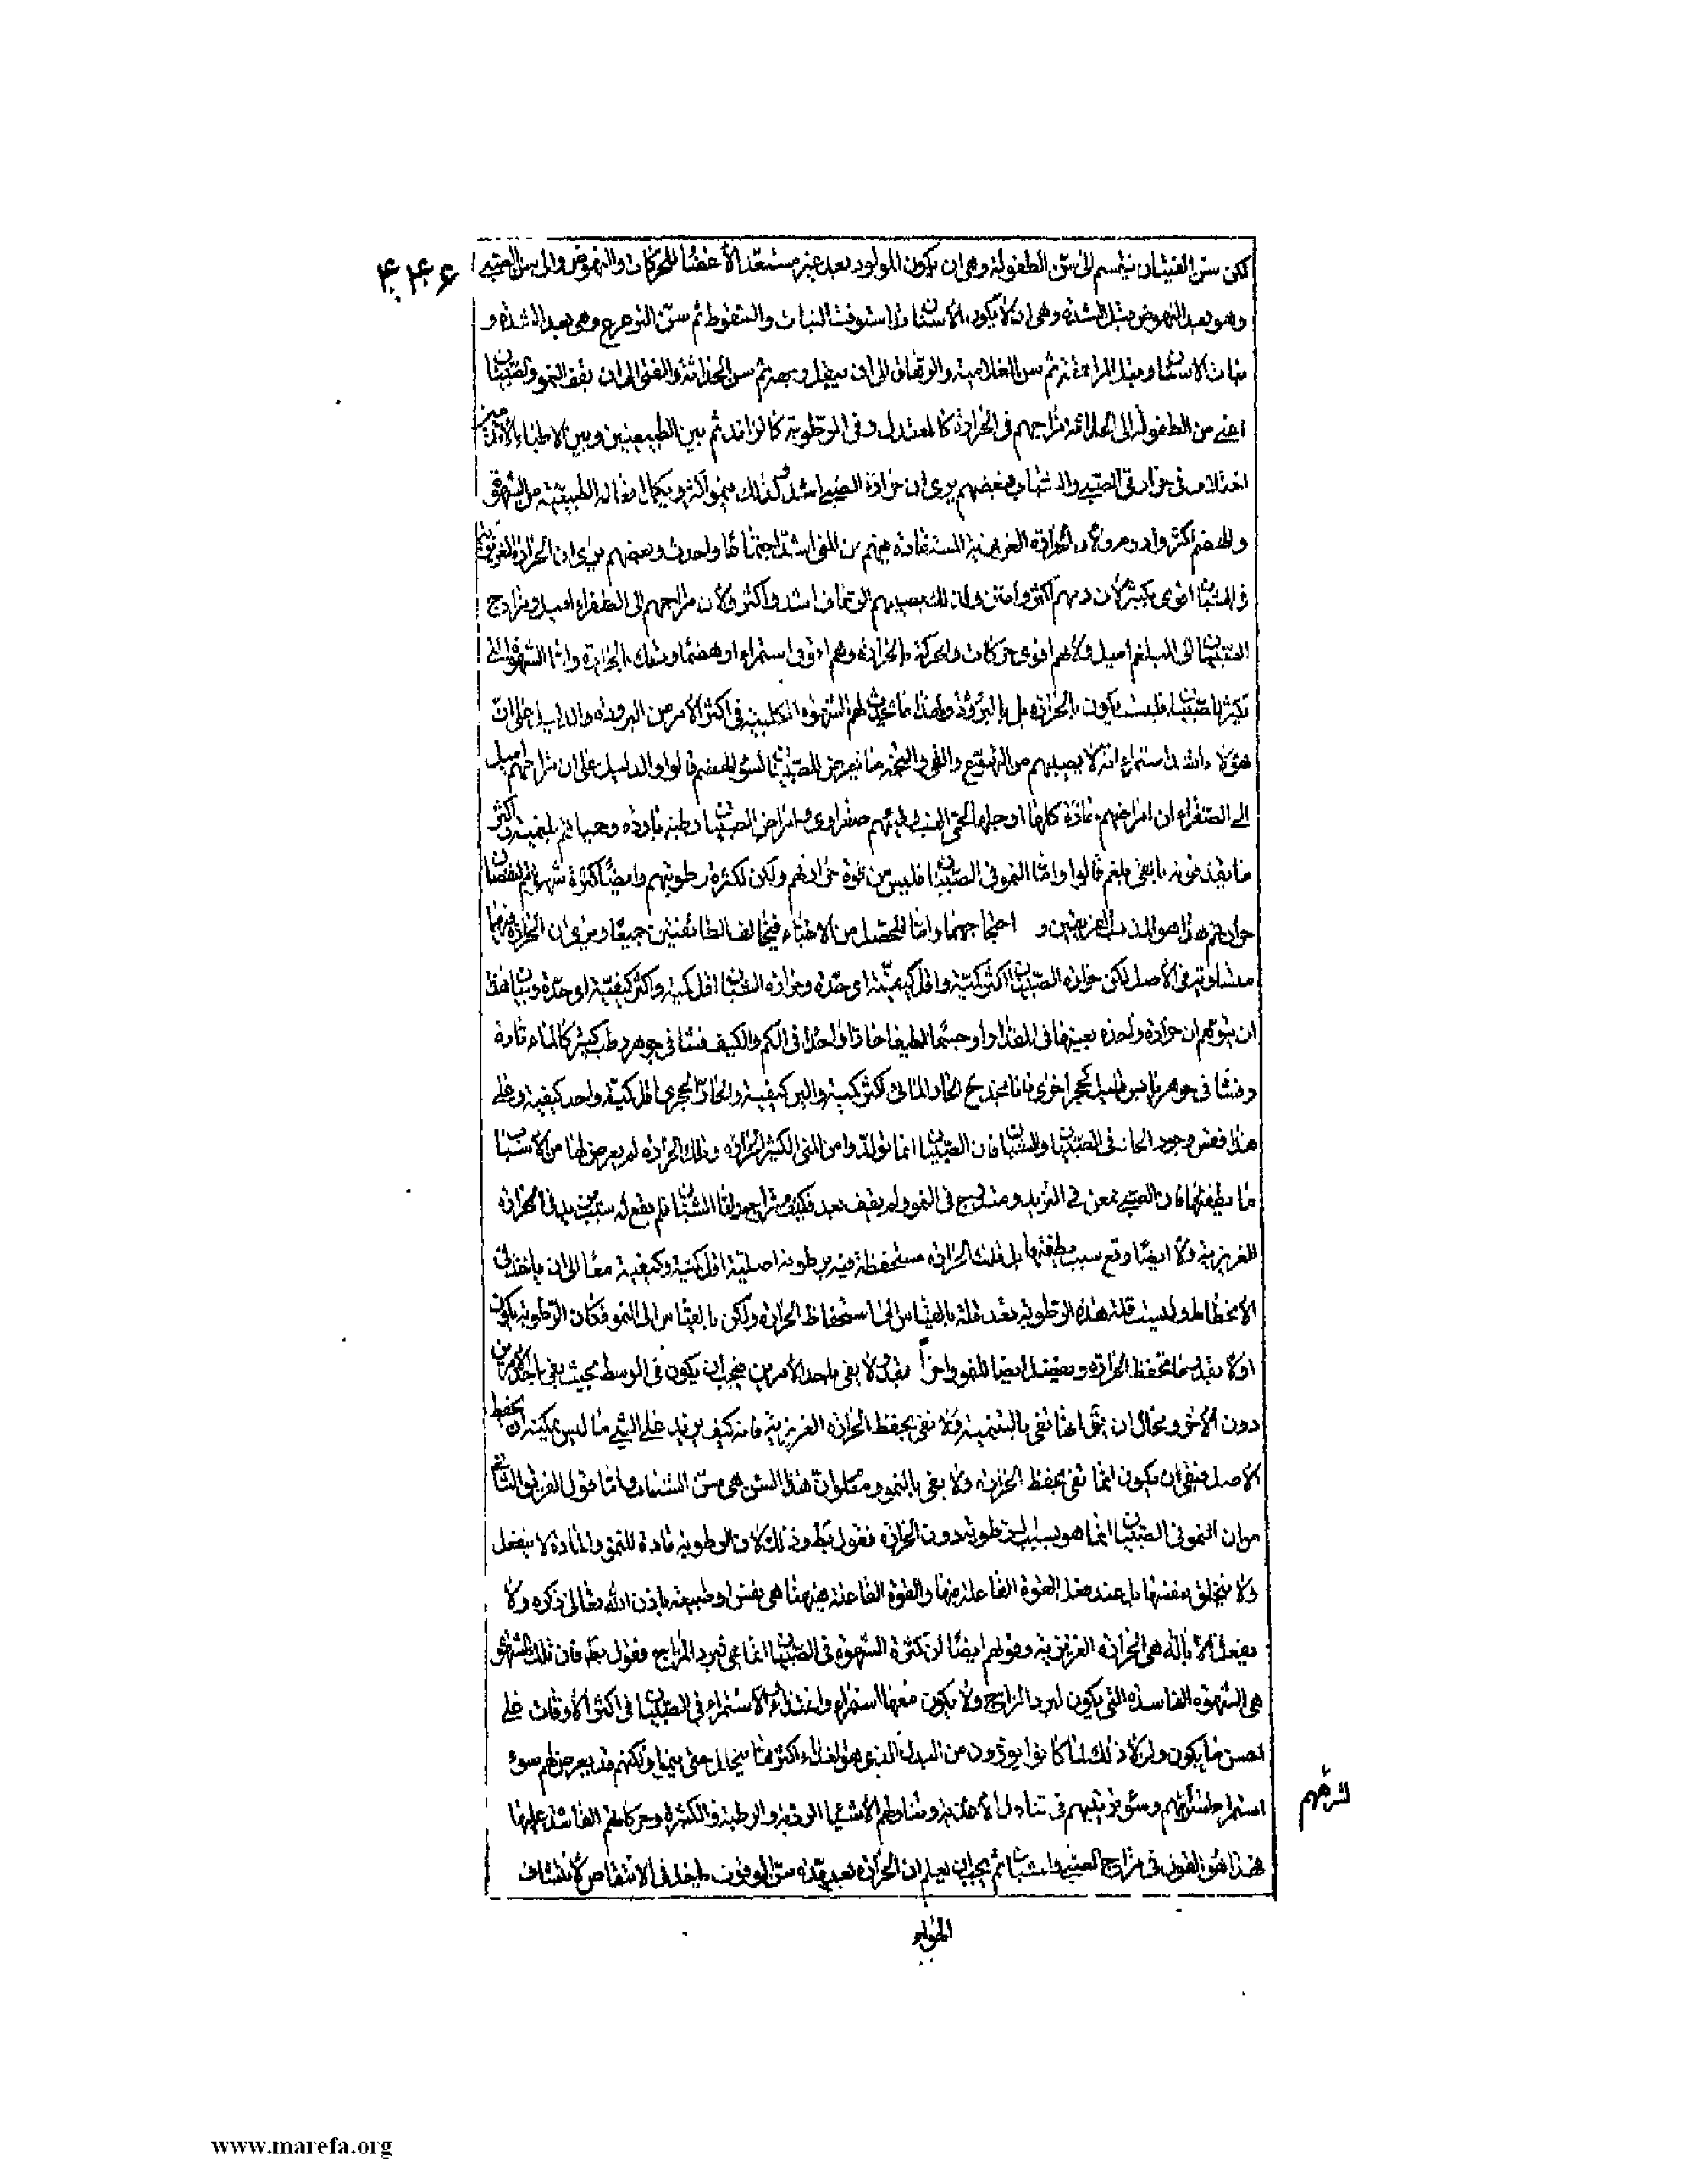 ۴۴۶
لكن سن الفتيان ينقسم الى سن الطفولة وهى ان يكون المولود بعد غير مستعد الأعضاء للحركات والنهوض والى سن الصبى
وهو بعد النهوض وقبل الشدة وهى ان لا يكون الأسنان استوفت النبات والسقوط ثم سن الترعرع وهى بعد الشدة و
نبات الاسنان وقبل المراهقة ثم سن الغلامية والرهاق الى ان يبقل وجهه ثم سن الحداثة والفتى الى ان يقف النمو والصبيان
اعنى من الطفولة الى الحداثة مزاجهم فى الحرارة كالمعتدل وفى الرطوبة كالزائد ثم بين الطبيعيين وبين الاطباء الاقدمين
اختلاف فى حرارتى الصبى والشاب فبعضهم يرى ان حرارة الصبى اشد ولذلك ينمو اكثر ويكمل افعاله الطبيعية من الشهوة
والهضم اكثر وادوم ولأن الحرارة الغريزية المستفادة فيهم من المنى اشد اجتماعا واحدث وبعضهم يرى ان الحرارة الغريزية
فى الشبان اقوى بكثير لأن دمهم اكثر وامتن ولذلك يصيبهم الرعاف اشد واكثر ولأن مزاجهم الى الصفراء اميل ومزاج
الصبيان الى البلغم اميل ولأنهم اقوى حركات والحركة بالحرارة وهم اقوى استمراء وهضما وذلك بالحرارة واما الشهوة التى
تكثر بالصبيان فليست يكون بالحرارة بل بالبرودة ولهذا ما تحدث لهم الشهوة الكلبية فى اكثر الأمر من البرودة والدليل على ان
هؤلاء اشد استمراء انه لا يصيبهم من التهوع والقى والتخمة ما يعرض للصبيان لسوء الهضم قالوا والدليل على ان مزاجهم اميل
الى الصفراء ان امراضهم حارة كلها او جلها كحمى الغب وقيئهم صفراوى وامراض الصبيان رطبة باردة وحمياتهم بلغمية واكثر
ما يقذفونه بالقى بلغم قالوا واما النمو فى الصبيان فليس من قوة حرارتهم ولكن لكثرة رطوبتهم وايضا كثرة شهوتهم لنقصان
حرارتهم هذا هو المذهب الفريقين و احتجاجهما واما المحصل من الاطباء فيخالف الطائفتين جميعا ويرى ان الحرارة فيهما
متساوية فى الأصل لكن حرارة الصبيان اكثر كمية واقل كيفية اى حدة وحرارة الشبان اقل كمية واكثر كيفية اى حدة وبيان هذا
ان يتوهم ان حرارة واحدة بعينها فى المقدار او جسما لطيفا حارا واحدا فى الكم والكيف فشا فى جوهر رطب كثير كالماء تارة
وفشا فى جوهر يابس قليل كحجر اخرى فانا نجد ح الحار المائى اكثر كمية والين كيفية والحار الحجرى اقل كمية واحد كيفية وعلى
هذا فقس وجود الحار فى الصبيان والشبان فان الصبيان انما تولدوا من المنى الكثير الحرارة وتلك الحرارة لم يعرض لها من الاسباب
ما يطفئها فان الصبى ممعن فى التزيد ومتدرج فى النمو ولم يقف بعد فكيف يتراجع واما الشبان فلم يقع له سبب يزيد فى الحرارة
الغريزية ولا ايضا وقع سبب يطفئها بل تلك الحرارة مستحفظة فيه برطوبة اصلية اقل كمية وكيفية معا الى ان ياخذ فى
الانحطاط وليست قلة هذه الرطوبة بعد قلة بالقياس الى استحفاظ الحرارة ولكن بالقياس الى النمو فكان الرطوبة يكون
اولا بقدر ما يحفظ الحرارة ويفضل ايضا للنمو واخرا بقدر لا يفى باحد الأمرين فيجب ان يكون فى الوسط بحيث يفى باحد الامرين
دون الآخر ومحال ان يق انها تفى بالتنمية ولا تفى بحفظ الحرارة الغريزية فانه كيف يزيد على الشئ ما ليس يمكنه ان يحفظ
الاصل فبقى ان يكون انما تفى بحفظ الحرارة ولا يفى بالنمو ومعلوم ان هذا السن هى سن الشباب واما قول الفريق الثانى
من ان النمو فى الصبيان انما هو بسبب الرطوبة دون الحرارة فقول بط وذلك لان الرطوبة مادة للنمو والمادة لا ينفعل
ولا يتخلق بنفسها بل عند فعل القوة الفاعلة فيها والقوة الفاعلة هيهنا هى نفس او طبيعة باذن الله تعالى ذكره ولا
يفعل الا بآلة هى الحرارة الغريزية وقولهم ايضا ان كثرة الشهوة فى الصبيان انما هى لبرد المزاج فقول بط فان تلك الشهوة
هى الشهوة الفاسدة التى يكون لبرد المزاج ولا يكون معها استمراء واغتذاء والاستمراء فى الصبيان فى اكثر الأوقات على
احسن ما يكون ولولا ذلك لما كانوا يوردون من البدل الذى هو الغذاء اكثر مما يتحلل حتى ينموا ولكنهم قد يعرض لهم سوء
استمراء لشرههم وسوء ترتيبهم فى تناول الأغذية وتناولهم الأشياء الردية والرطبة والكثيرة وحركاتهم الفاسدة عليها
لشرههم
هذا هو القول فى مزاج الصبى والشاب ثم يجب ان يعلم ان الحرارة بعد مدة سن الوقوف ياخذ فى الانتقاص لانتشاف
الهواء
www.marefa.org